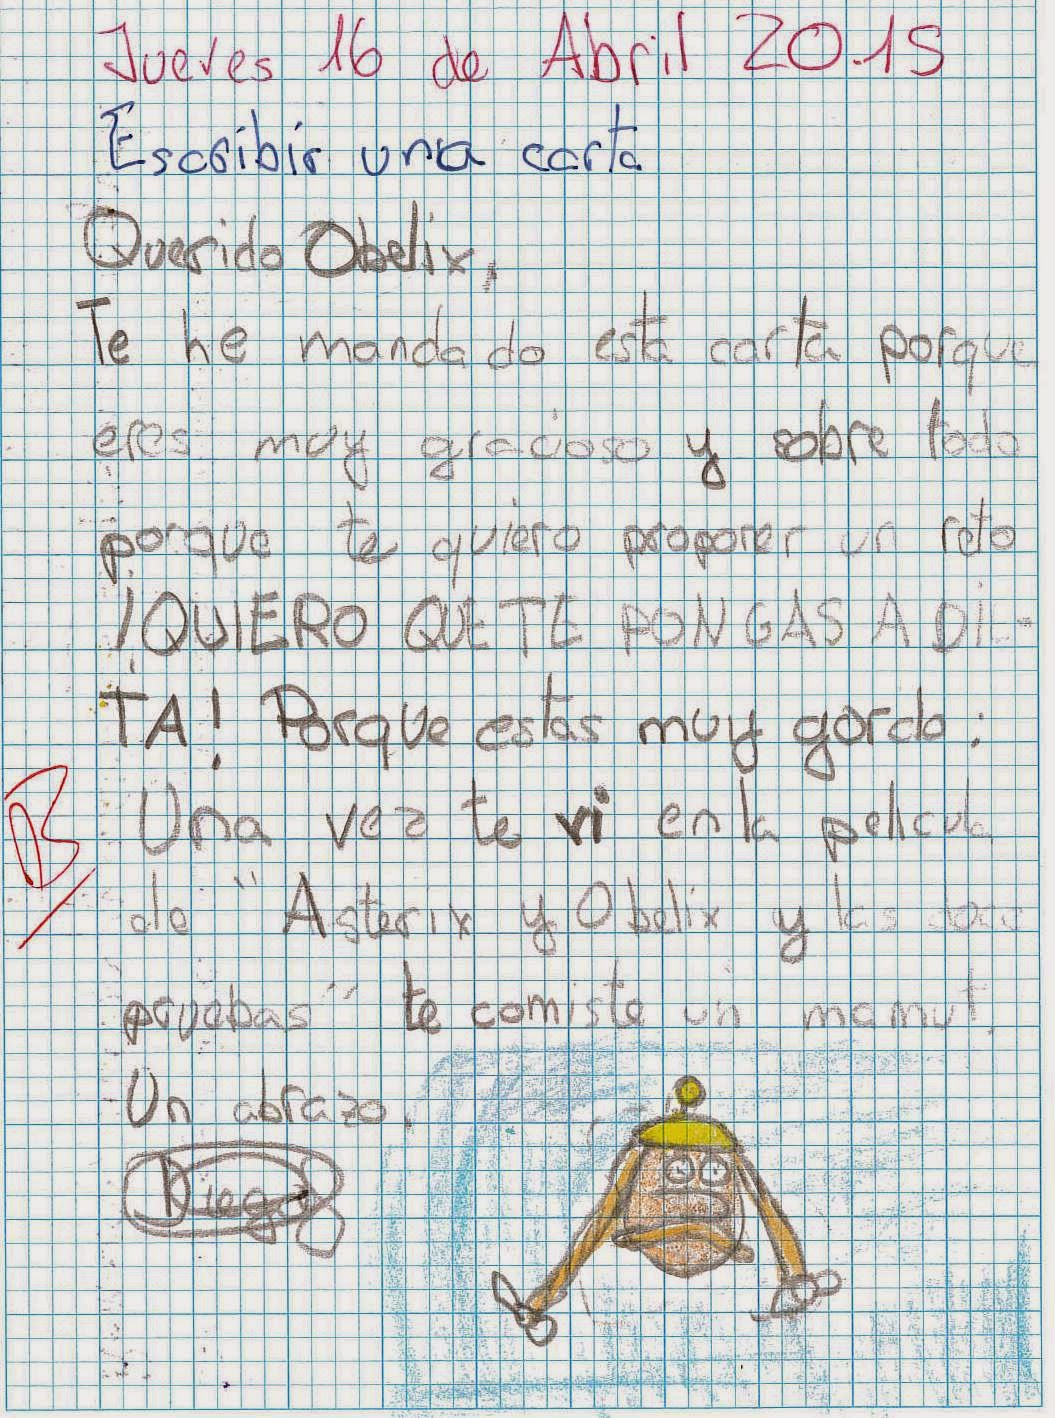 Jueves 16 de Abril 20.15
Escribir una carta
Querido Obelix,
Te he mandado esta carta porque
eres muy gracioso y sobre todo
porque te quiero proponer un reto
¡QUIERO QUE TE PONGAS A DIE-
TA! Porque estas muy gordo:
Una vez te vi en la pelicula
de "Asterix y Obelix y las doce
pruebas" te comiste un mamut.
Un abrazo.
Diego
B